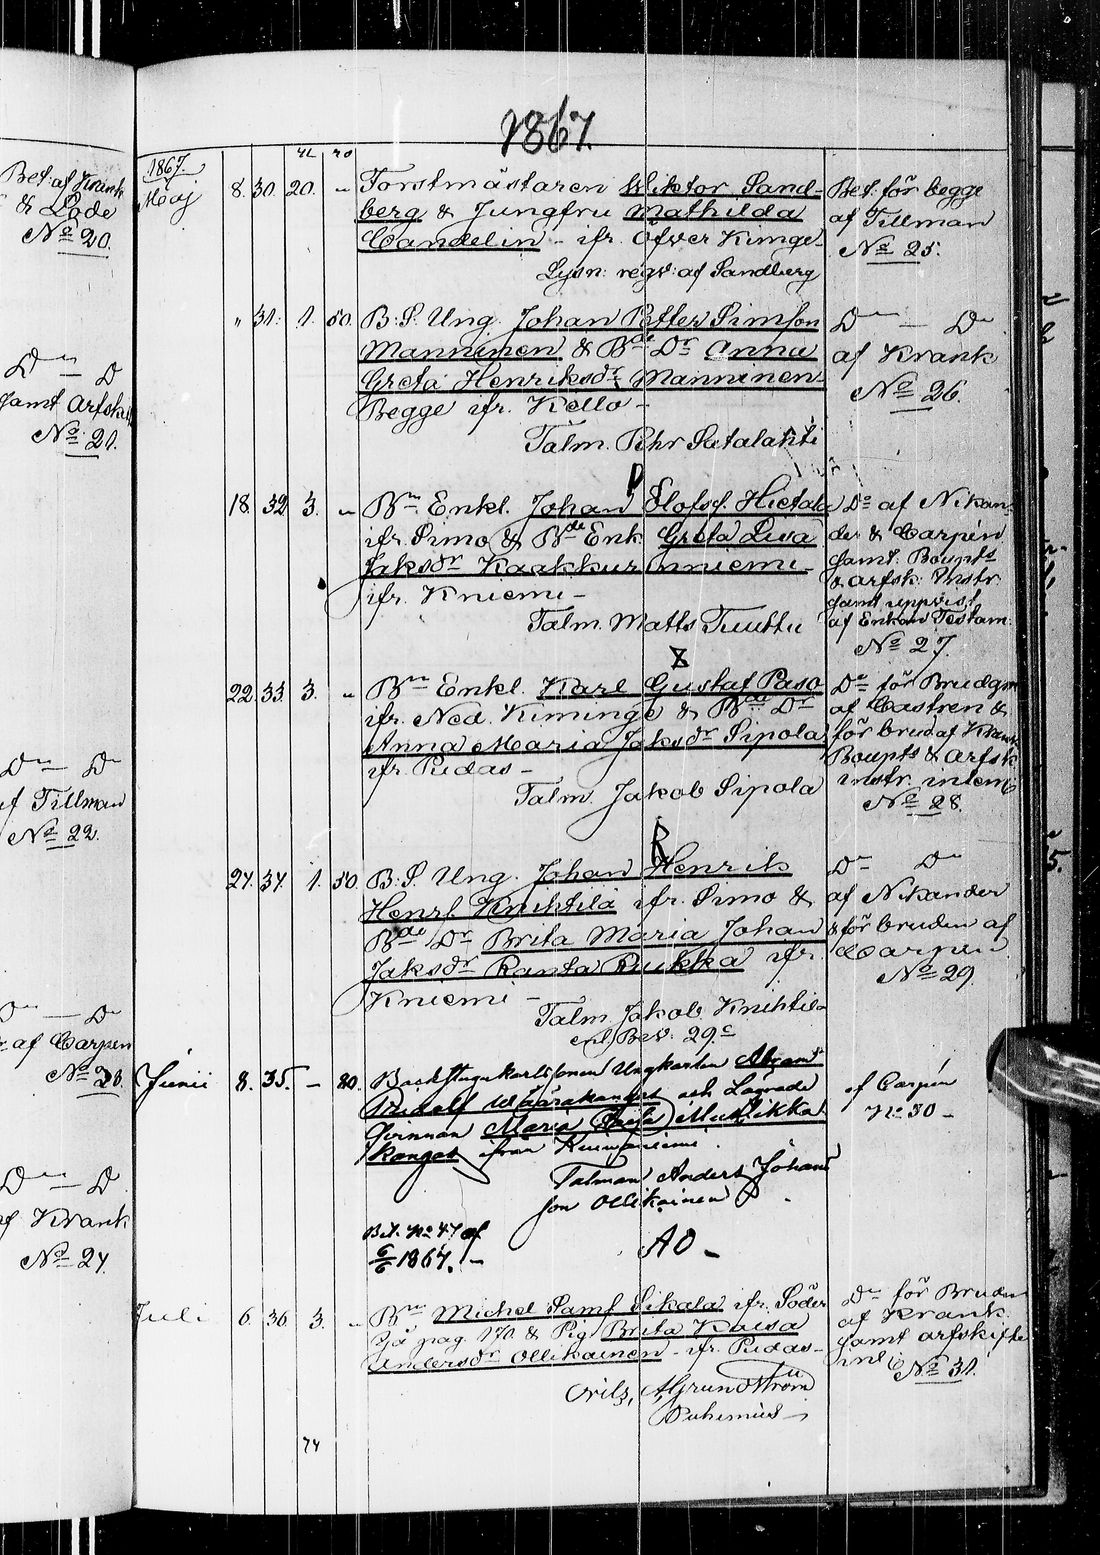 1867.
Bet. af Krank
& Lode
No 20.
Dn — D
samt Arfsk
No 21.
Dn — Dn
af Tillman
No 22.
Dn — Dn
af Carpen
No 23.
Dn — D
af Krank
No 24.
1867.
Maj 8. 30. 20. " Forstmästaren Wiktor Sand-
berg & Jungfru Mathilda
Candelin - ifr. Öfver Kimge-
Lysn: af Sandberg
Bet. för begge
af Tillman
No 25.
" 31. 1. 50. B. S. Ung. Johan Petter Simsson
Manninen & Bde Dr Anna
Greta Henriksdr Manninen-
Begge ifr. Kello-
Talm. Pehr Setalahti
Dn — Dn
af Krank
No 26.
18. 32. 3. " Bn Enkl. Johan Olofss. Hietala
ifr. Simo & Bde Enk. Greta Lisa
Jaksdr Kaakkurinniemi-
ifr. Kniemi-
Talm. Matts Tuuttu
Do af Nikan-
der & Carpén
samt Boupts
& arfsk: Instr.
samt uppvist
af Enkan Testam:
No 27.
22. 33. 3. " Bn Enkl. Karl Gustaf Paso
ifr. Ned. Kiminge & Bde Dr
Anna Maria Jaksdr Sipola
ifr. Pudas-
Talm. Jakob Sipola
Do för Brudgm
af Castren &
för brud af Krank
Boupts & Arfsk
instr. intem
No 28.
R
24. 34. 1. 50. B. S. Ung. Johan Henrik
Henrs. Knihtilä ifr. Simo &
Bde Dr Brita Maria Johan
Jaksdr Ranta Rukka ifr.
Kniemi-
Talm. Jakob Knihtilä
Bev. 29c
Dn Dn
af Nikander
& för bruden af
Carpen
No 29.
Junii 8. 35. - 80. Ungkarlen Abram
Rudolf Wääräkangas och Lägrade
Qvinnan Maria Kaisa Mustikka
kangas ifrån
Talman Anders Johans
son Ollikainen
Bet. No 47 af
6/6 1867. -
AO -
af Carpén
No 30 -
Juli 6. 36. 3. " Bn Michel Samf Sikala ifr. Söder
pag. 170 & Pig. Brita Kaisa
Andersdr Ollikainen - ifr. Pudas-
Nils, A. Grundström
Puhemies
Dn för Bruden
af Krank.
samt arfskifte
No 31.
74